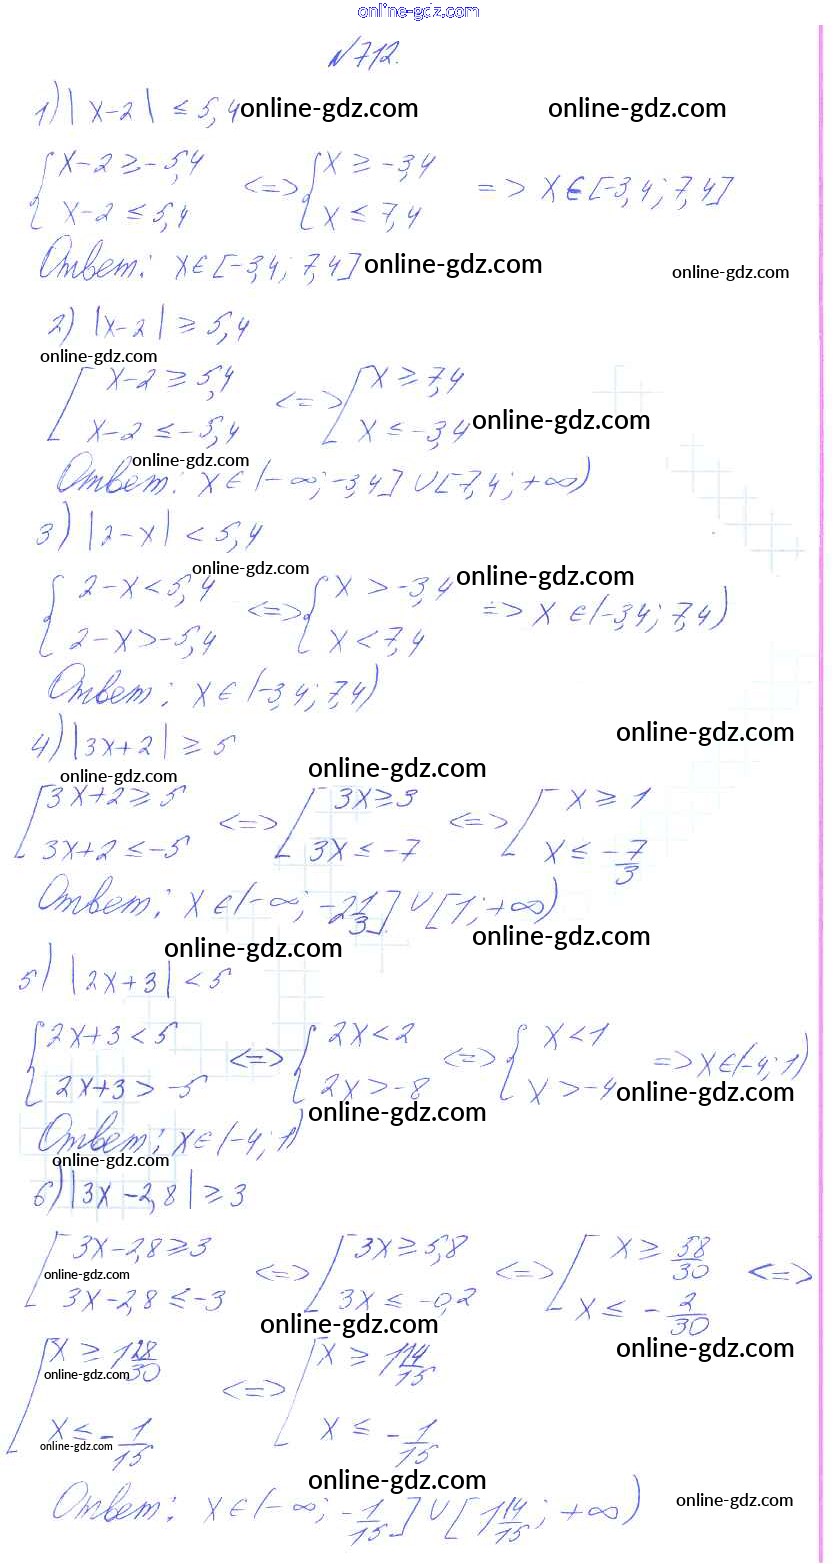 online-gdz.com
N712.
1) |x-2| ≤ 5,4 online-gdz.com online-gdz.com
{ x-2 ≥ -5,4 <=> { x ≥ -3,4 => x∈[-3,4; 7,4]
x-2 ≤ 5,4 x ≤ 7,4
Ответ: x∈[-3,4; 7,4] online-gdz.com online-gdz.com
2) |x-2| ≥ 5,4
online-gdz.com
[ x-2 ≥ 5,4 <=> [ x ≥ 7,4
x-2 ≤ -5,4 x ≤ -3,4 online-gdz.com
online-gdz.com
Ответ: x∈(-∞; -3,4] ∪ [7,4; +∞)
3) |2-x| < 5,4
online-gdz.com online-gdz.com
{ 2-x < 5,4 <=> { x > -3,4 => x∈(-3,4; 7,4)
2-x > -5,4 x < 7,4
Ответ: x∈(-3,4; 7,4)
4) |3x+2| ≥ 5 online-gdz.com
online-gdz.com online-gdz.com
[ 3x+2 ≥ 5 <=> [ 3x ≥ 3 <=> [ x ≥ 1
3x+2 ≤ -5 3x ≤ -7 x ≤ -7/3
Ответ: x∈(-∞; -2 1/3] ∪ [1; +∞)
online-gdz.com online-gdz.com
5) |2x+3| < 5
{ 2x+3 < 5 <=> { 2x < 2 <=> { x < 1 => x∈(-4; 1)
2x+3 > -5 2x > -8 x > -4 online-gdz.com
online-gdz.com
Ответ: x∈(-4; 1)
online-gdz.com
6) |3x-2,8| ≥ 3
[ 3x-2,8 ≥ 3 <=> [ 3x ≥ 5,8 <=> [ x ≥ 58/30 <=>
online-gdz.com
3x-2,8 ≤ -3 3x ≤ -0,2 x ≤ -2/30
online-gdz.com online-gdz.com
[ x ≥ 1 28/30 <=> [ x ≥ 1 14/15
online-gdz.com
x ≤ -1/15 x ≤ -1/15
online-gdz.com
online-gdz.com online-gdz.com
Ответ: x∈(-∞; -1/15] ∪ [1 14/15; +∞)